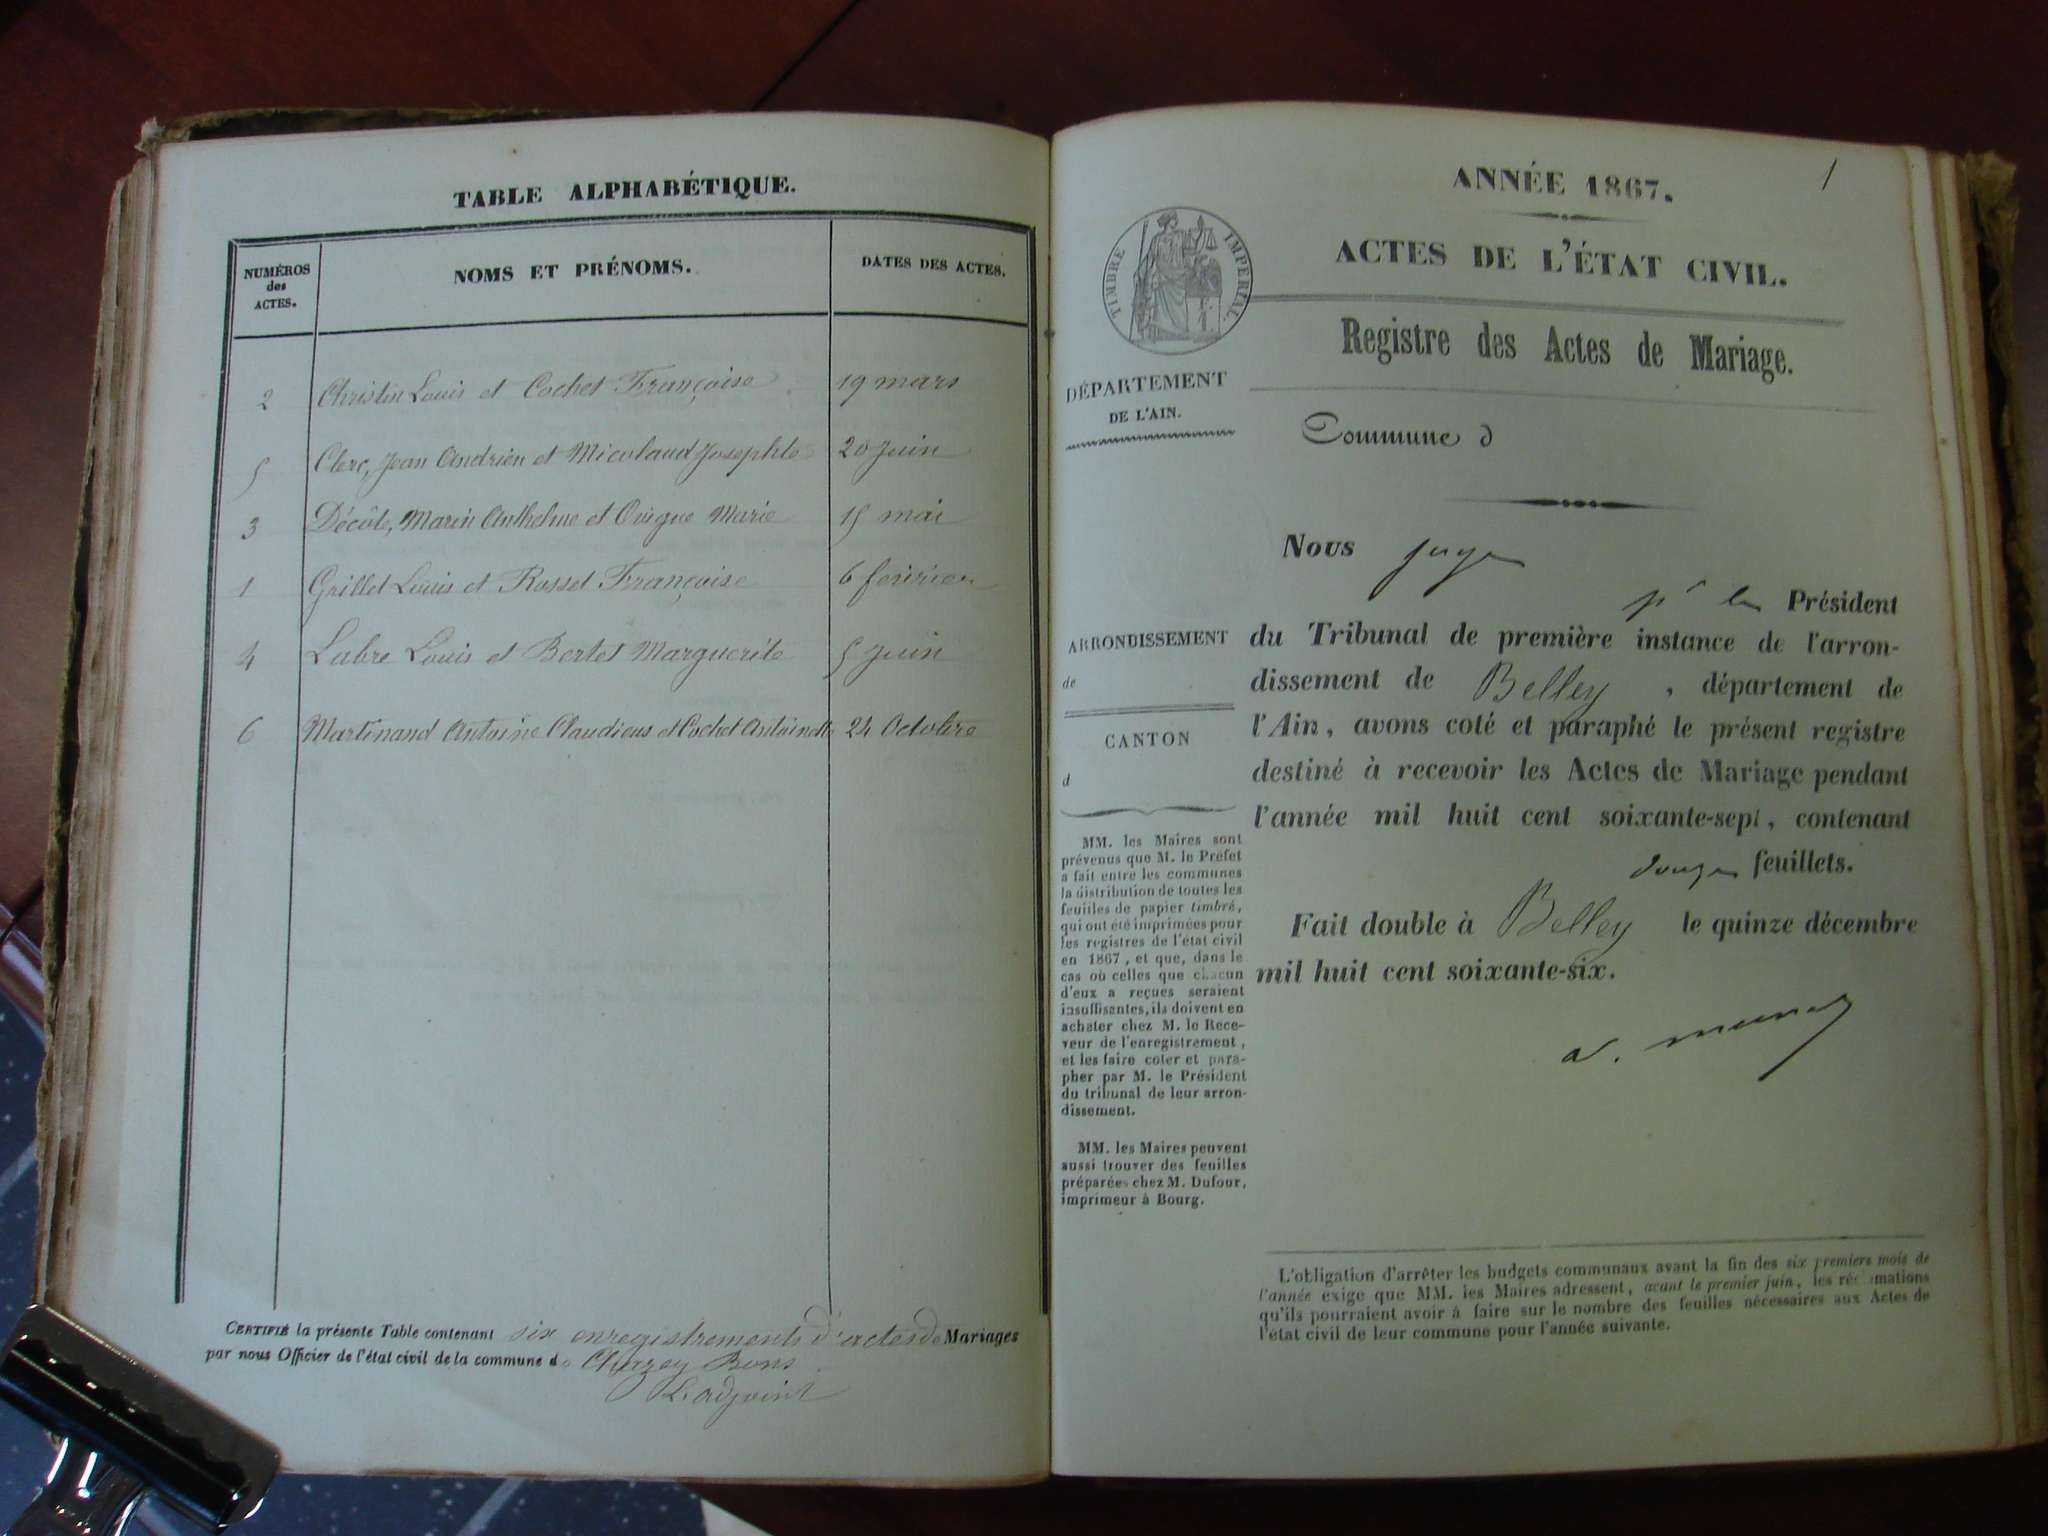 TABLE ALPHABÉTIQUE.
NUMÉROS des ACTES.
NOMS ET PRÉNOMS.
DATES DES ACTES.
2 Christin Louis et Cochet Françoise 19 mars
5 Clerc, Jean Andrien et Micolaud Josephte 20 Juin
3 Décôte, Marin Anthelme et Ouigue Marie 15 mai
1 Grillet Louis et Rosset Françoise 6 février
4 Labre Louis et Bertet Marguerite 5 Juin
6 Martinand Antoine Claudieus et Cochet Antoinette 24 Octobre
CERTIFIÉ la présente Table contenant six enregistrements d'actes de Mariages
par nous Officier de l'état civil de la commune de Chazey Bons
L'adjoint
1
ANNÉE 1867.
ACTES DE L'ÉTAT CIVIL.
TIMBRE IMPERIAL.
Registre des Actes de Mariage.
DÉPARTEMENT
DE L'AIN.
Commune d
ARRONDISSEMENT
de
CANTON
d
MM. les Maires sont
prévenus que M. le Préfet
a fait entre les communes
la distribution de toutes les
feuilles de papier timbré,
qui ont été imprimées pour
les registres de l'état civil
en 1867, et que, dans le
cas où celles que chacun
d'eux a reçues seraient
insuffisantes, ils doivent en
acheter chez M. le Rece-
veur de l'enregistrement,
et les faire coter et para-
pher par M. le Président
du tribunal de leur arron-
dissement.
MM. les Maires peuvent
aussi trouver des feuilles
préparées chez M. Dufour,
imprimeur à Bourg.
Nous juge
pr le Président
du Tribunal de première instance de l'arron-
dissement de Belley, département de
l'Ain, avons coté et paraphé le présent registre
destiné à recevoir les Actes de Mariage pendant
l'année mil huit cent soixante-sept, contenant
douze feuillets.
Fait double à Belley le quinze décembre
mil huit cent soixante-six.
L'obligation d'arrêter les budgets communaux avant la fin des six premiers mois de
l'année exige que MM. les Maires adressent, avant le premier juin, les réclamations
qu'ils pourraient avoir à faire sur le nombre des feuilles nécessaires aux Actes de
l'état civil de leur commune pour l'année suivante.